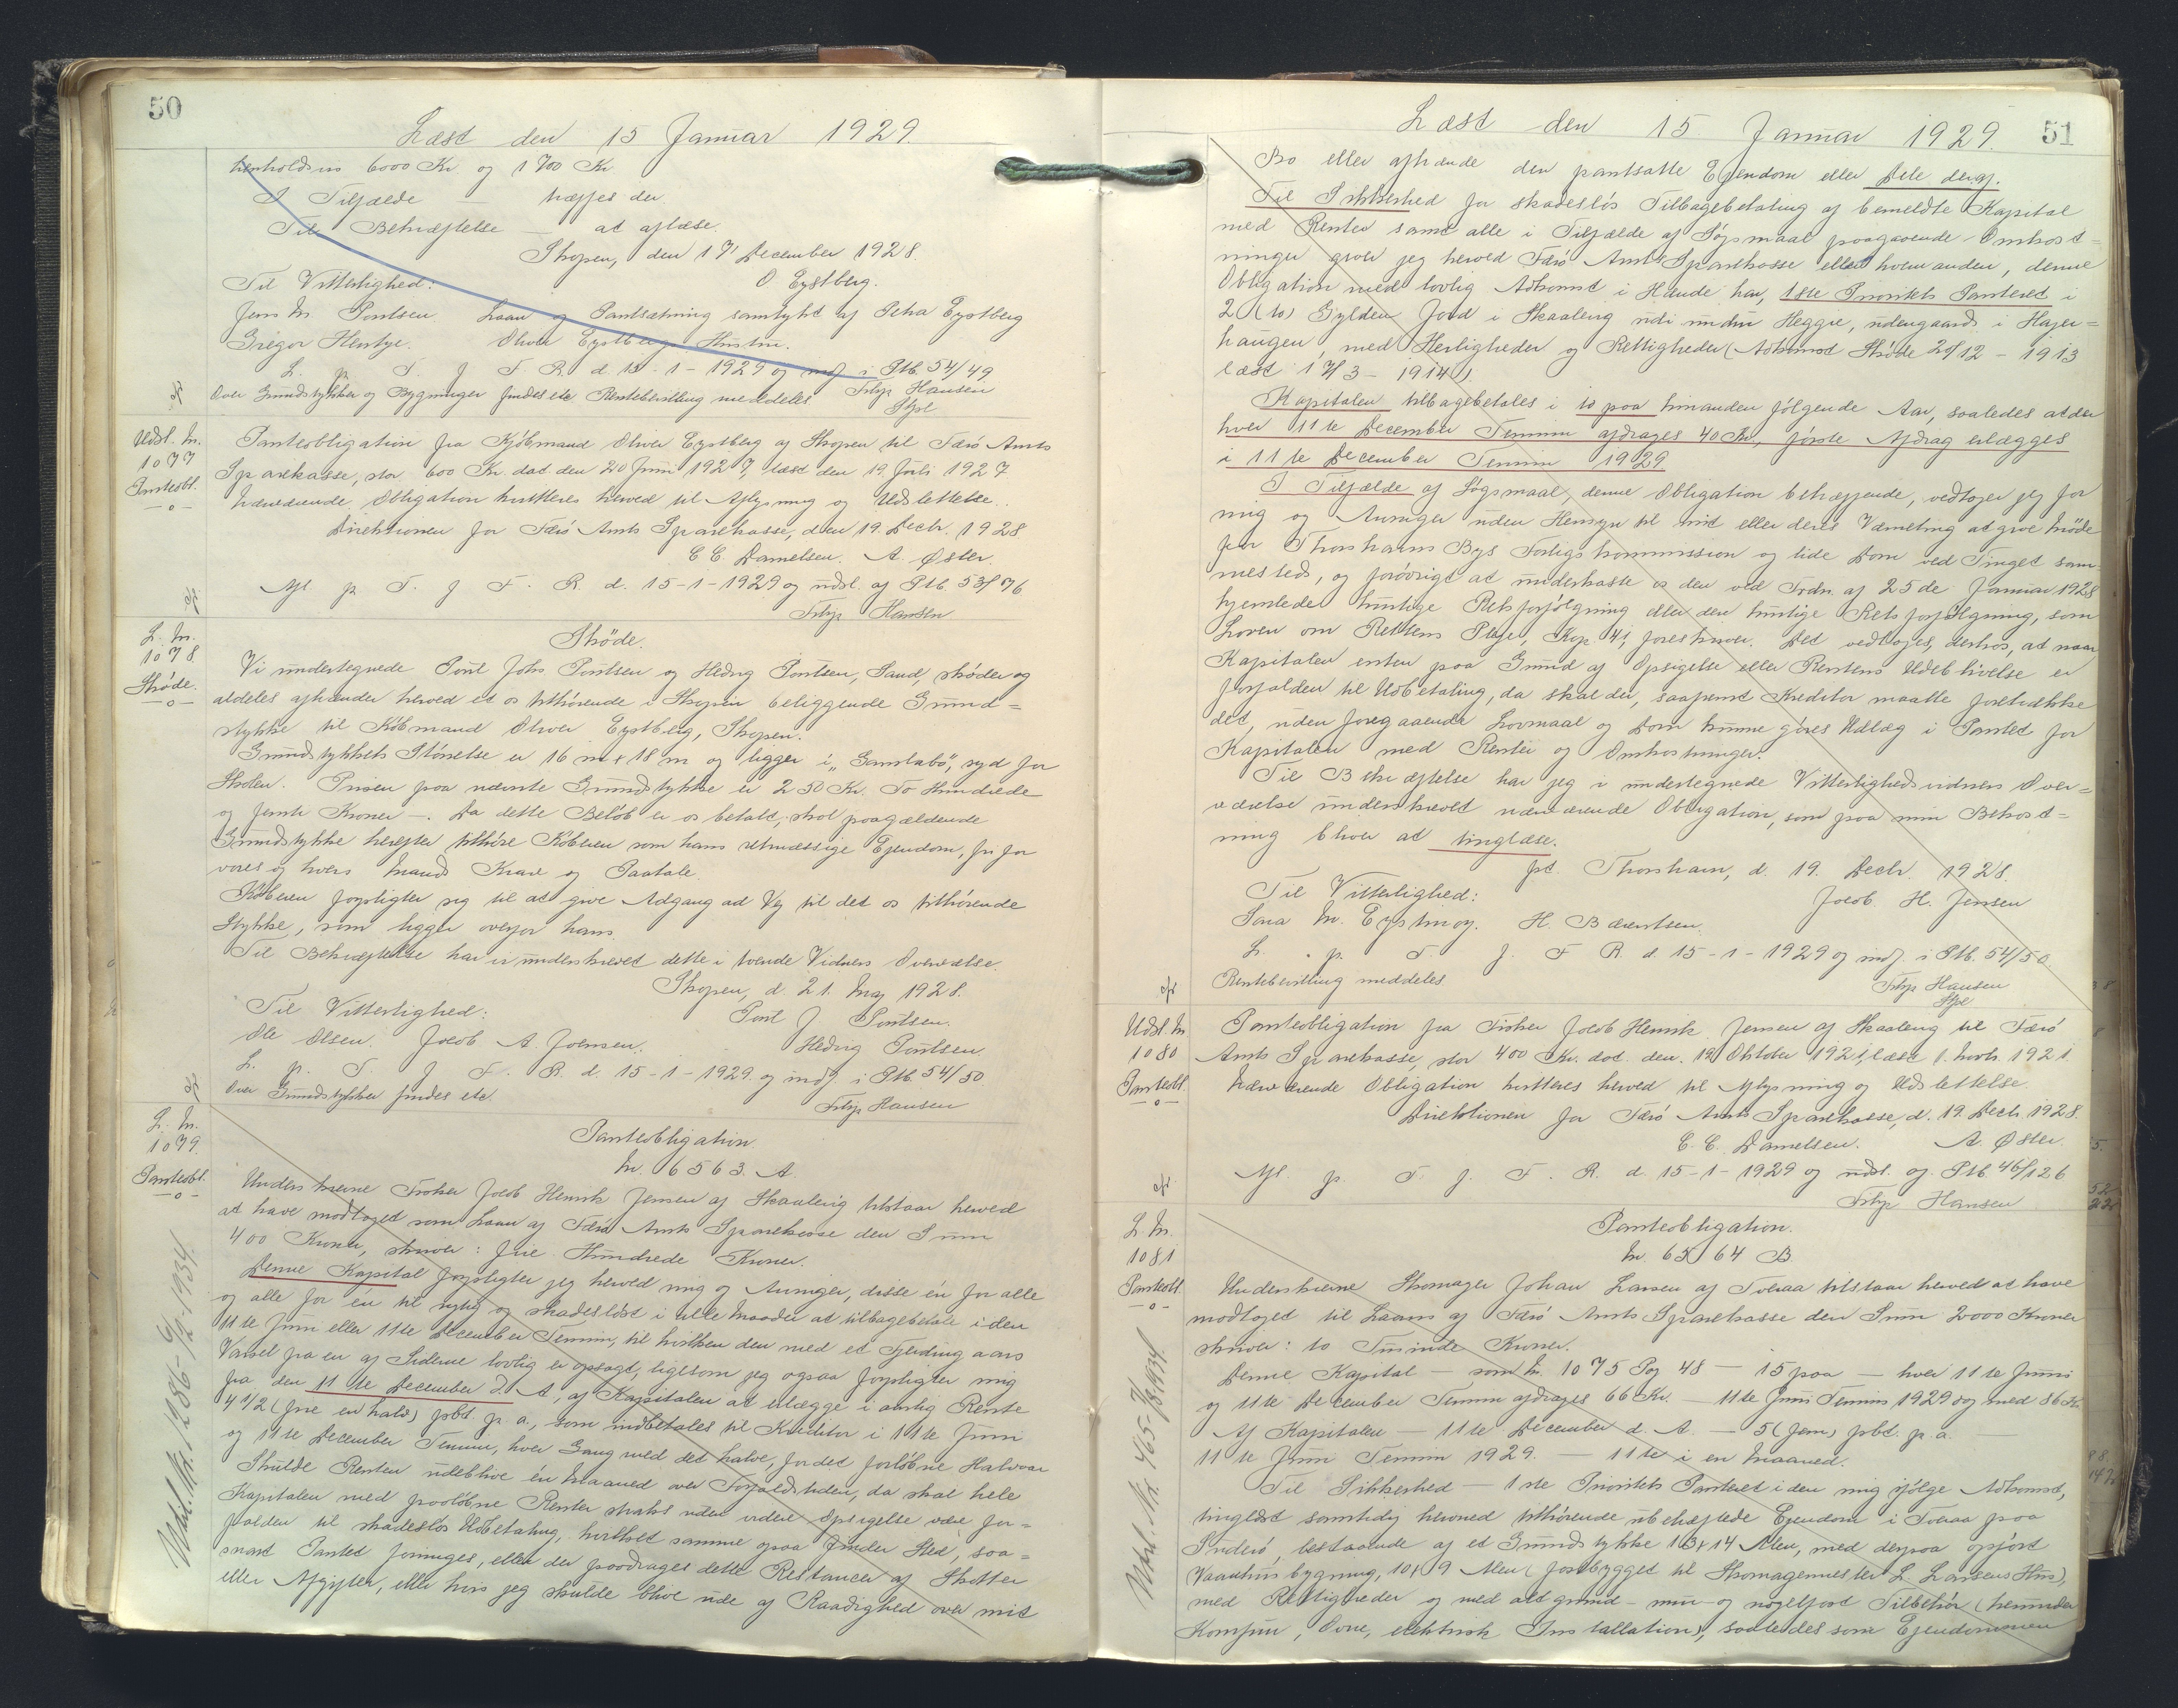 50
Læst den 15 Januar 1929.
henholdsvis 6000 Kr og 1700 Kr
I Tilfælde — træffes der
Til Bekræftelse — at aflæse.
Skopen, den 17 December 1928.
O Eystberg.
Til Vitterlighed:
Jens M. Poulsen. Laan og Pantsætning samtykt af Petra Eystberg
Gregor Hentze. Oliver Eystbergs Hustru.
L. p. T. f F. R. d. 15-1-1929 og indf. i Ptb. 54/49
Over Grundstykker og Bygninger findes etc Rentebevilling meddeles Filip Hansen
Udsl. N.
1077
Panteobl.
Panteobligation fra Kjøbmand Oliver Eystberg af Skopen til Færø Amts
Sparekasse, stor 600 Kr. dat. den 20 Juni 1927, læst den 19 Juli 1927
Nærværende Obligation kvitteres herved til Aflysning og Udslettelse.
Direktionen for Færø Amts Sparekasse, den 19. Decbr. 1928
C C. Danielsen. A. Øster.
Afl. p. T. f F. R. d. 15-1-1929 og udsl. af Ptb. 53/76
Filip Hansen
L. N.
1078.
Skøde.
Skøde.
Vi undertegnede Poul Johs Poulsen og Hedvig Poulsen, Sand, skøder og
aldeles afhænder herved et os tilhørende i Skopen beliggende Grund=
stykke til Købmand Oliver Eystberg, Skopen.
Grundstykkets Størrelse er 16 m x 18 m og ligger i „Gamlabø", syd for
Skolen. Prisen paa nævnte Grundstykke er 250 Kr. To Hundrede
og femti Kroner —. Da dette Beløb er os betalt, skal paagældende
Grundstykke herefter tilhøre Køberen som hans retmæssige Ejendom, fri for
vores og hvers Mands Krav og Paatale.
Køberen forpligter sig til at give Adgang ad Vej til det os tilhørende
Stykke, som ligger ovenfor hans.
Til Bekræftelse har vi underskrevet dette i tvende Vidners Overværelse.
Skopen, d. 21. Maj 1928.
Til Vitterlighed: Poul J. Poulsen.
Ole Olsen. Jacob A. Joensen. Hedvig Poulsen.
L. p. T. f F. R. d. 15-1-1929 og indf. i Ptb. 54/50.
Over Grundstykker findes etc. Filip Hansen
L. N.
1079.
Panteobl.
Panteobligation
Nr. 6563. A
Underskrevne Fisker Jacob Henrik Jensen af Skaalevig tilstaar herved
at have modtaget som Laan af Færø Amts Sparekasse den Sum
400 Kroner, skriver: fire Hundrede Kroner.
Denne Kapital forpligter jeg herved mig og Arvinger, disse én for alle
og alle for én til rigtig og skadesløst i alle Maader at tilbagebetale i den
11te Juni eller 11te December Termin, til hvilken den med et Fjerding aars
Varsel fra en af Siderne lovlig er opsagt, ligesom jeg ogsaa forpligter mig
fra den 11 te December d. A. af Kapitalen at erlægge i aarlig Rente
4 1/2 (fire en halv) pbt p. a., som indbetales til Kreditor i 11te Juni
og 11te December Termin, hver Gang med det halve, for det forløbne Halvaar
Skulde Renten udeblive én Maaned over Forfaldstiden, da skal hele
Kapitalen med paaløbne Renter straks uden videre Opsigelse være for=
falden til skadesløs Udbetaling, hvilket samme ogsaa finder Sted, saa=
snart Pantet forringes, eller der paadrages dette Restancer af Skatter
eller Afgifter, eller hvis jeg skulde blive ude af Raadighed over mit
Udsl. Nr. 1286 - 6/12 1934.
51
Læst den 15 Januar 1929.
Bo eller afhænde den pantsatte Ejendom eller Dele deraf.
Til Sikkerhed for skadesløs Tilbagebetaling af bemeldte Kapital
med Renter samt alle i Tilfælde af Søgsmaal paagaaende Omkost=
ninger giver jeg herved Færø Amts Sparekasse eller hvem anden, denne
Obligation med lovlig Adkomst i Hænde har, 1ste Prioritets Panteret i
2 (to) Gylden Jord i Skaalevig udi under Heggie, udengaards i Hajer=
haugen, med Herligheder og Rettigheder (Adkomst Skøde 20/12 - 1913
læst 17/3 - 1914).
Kapitalen tilbagebetales i 10 paa hinanden følgende Aar, saaledes at der
hver 11te December Termin afdrages 40 Kr, første Afdrag erlægges
i 11 te December Termin 1929
I Tilfælde af Søgsmaal, denne Obligation betræffende, vedtager jeg for
mig og Arvinger uden Hensyn til mit eller deres Værneting at give Møde
for Thorshavns Bys Forligskommission og lide Dom ved Tinget sam=
mesteds, og forøvrigt at underkaste os den ved Frdn. af 25de Januar 1928
hjemlede hurtige Retsforfølgning eller den hurtige Retsforfølgning, som
Loven om Rettens Pleje, Kap 41, foreskriver. Det vedtages, derhos, at naar
Kapitalen enten paa Grund af Opsigelse eller Rentens Udeblivelse er
forfalden til Udbetaling, da skal der, saafremt Kreditor maatte foretrække
det, uden foregaaende Lovmaal og Dom kunne gøres Udlæg i Pantet for
Kapitalen med Renter og Omkostninger.
Til Bekræftelse har jeg i undertegnede Vitterlighedsvidners Over=
værelse underskrevet nærværende Obligation, som paa min Bekost=
ning bliver at tinglæse.
pt. Thorshavn, d. 19. Decbr. 1928.
Til Vitterlighed: Jacob H. Jensen
H. Bærentsen.
L. p. T. f. F R. d. 15-1-1929 og indf. i Ptb. 54/50
Rentebevilling meddeles Filip Hansen
Udsl. N
1080
Panteobl.
Panteobligation fra Fisker Jacob Henrik Jensen af Skaalevig til Færø
Amts Sparekasse, stor 400 Kr. dat. den 19 Oktober 1921, læst 1. Novbr. 1921.
Nærværende Obligation kvitteres herved til Aflysning og Udslettelse.
Direktionen for Færø Amts Sparekasse, d. 19. Decbr. 1928.
C C. Danielsen. A. Øster.
Afl. p. T. f. F. R. d. 15-1-1929 og udsl. af Ptb 46/126
Filip Hansen
L. N.
1081
Panteobl.
Panteobligation.
Nr. 6564 B
Underskrevne Skomager Johan Larsen af Tveraa tilstaar herved at have
modtaget til Laans af Færø Amts Sparekasse den Sum 2000 Kroner
skriver: to Tusinde Kroner.
Denne Kapital — som N. 1075 Pag 48 — 15 paa — hver 11te Juni
og 11te December Termin afdrages 66 Kr — 11te Juni Termin 1929 og med 86 Kr.
Af Kapitalen — 11te December d. A. — 5 (fem) pbt. p. a. —
11 te Juni Termin 1929. — 11te i en Maaned.
Til Sikkerhed — 1ste Prioritets Panteret i den mig ifølge Adkomst,
tinglæst samtidig hermed tilhørende ubehæftede Ejendom i Tveraa paa
Suderø, bestaaende af et Grundstykke 16 x 14 Alen, med derpaa opført
Vaaningsbygning, 10 x 9 Alen (fastbygget til Skomagermester L. Larsens Hus),
med Rettigheder og med alt grund- mur- og nagelfast Tilbehør (herunder
Komfur, Ovne, elektrisk Installation), saaledes som Ejendommen
Udsl. Nr. 465 -